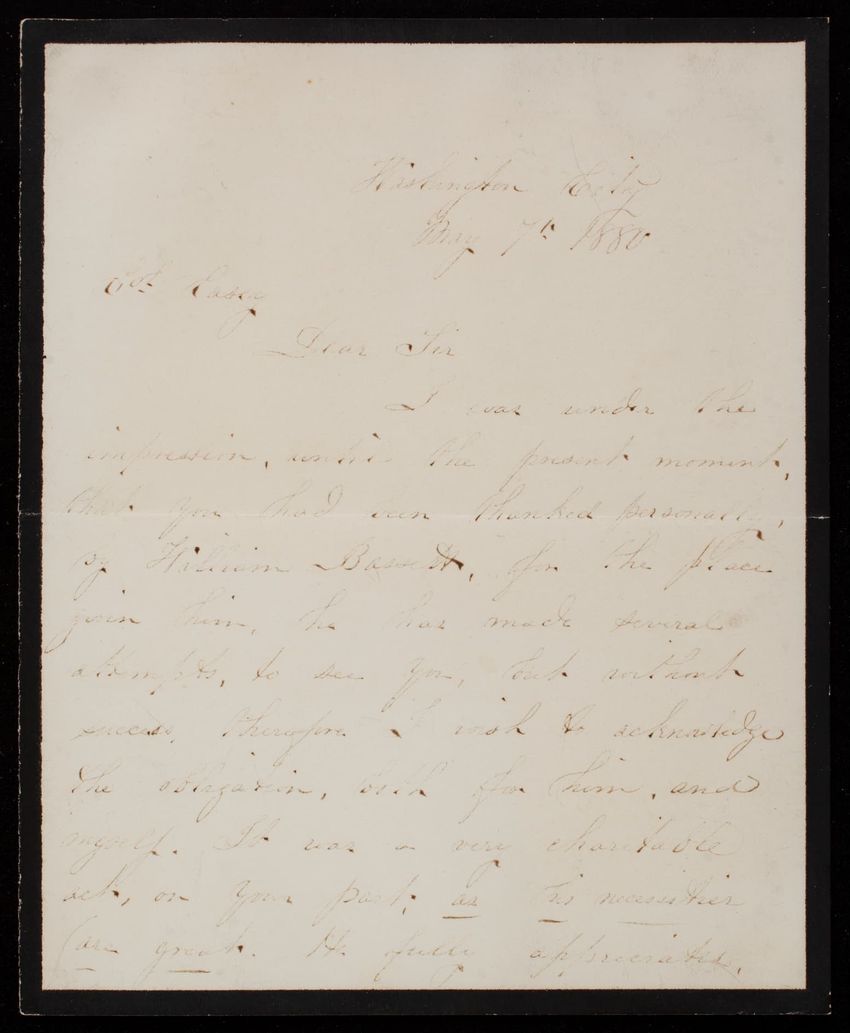 Washington City
May 7th 1880
Col Casey
Dear Sir
I was under the
impression, until the present moment,
that you had been thanked personally,
by William Bassett, for the place
given him, he has made several
attempts, to see you, but without
success, therefore I wish to acknowledge
the obligation, both for him, and
myself. It was a very charitable
act, on your part, as his necessities
are great. He fully appreciates,